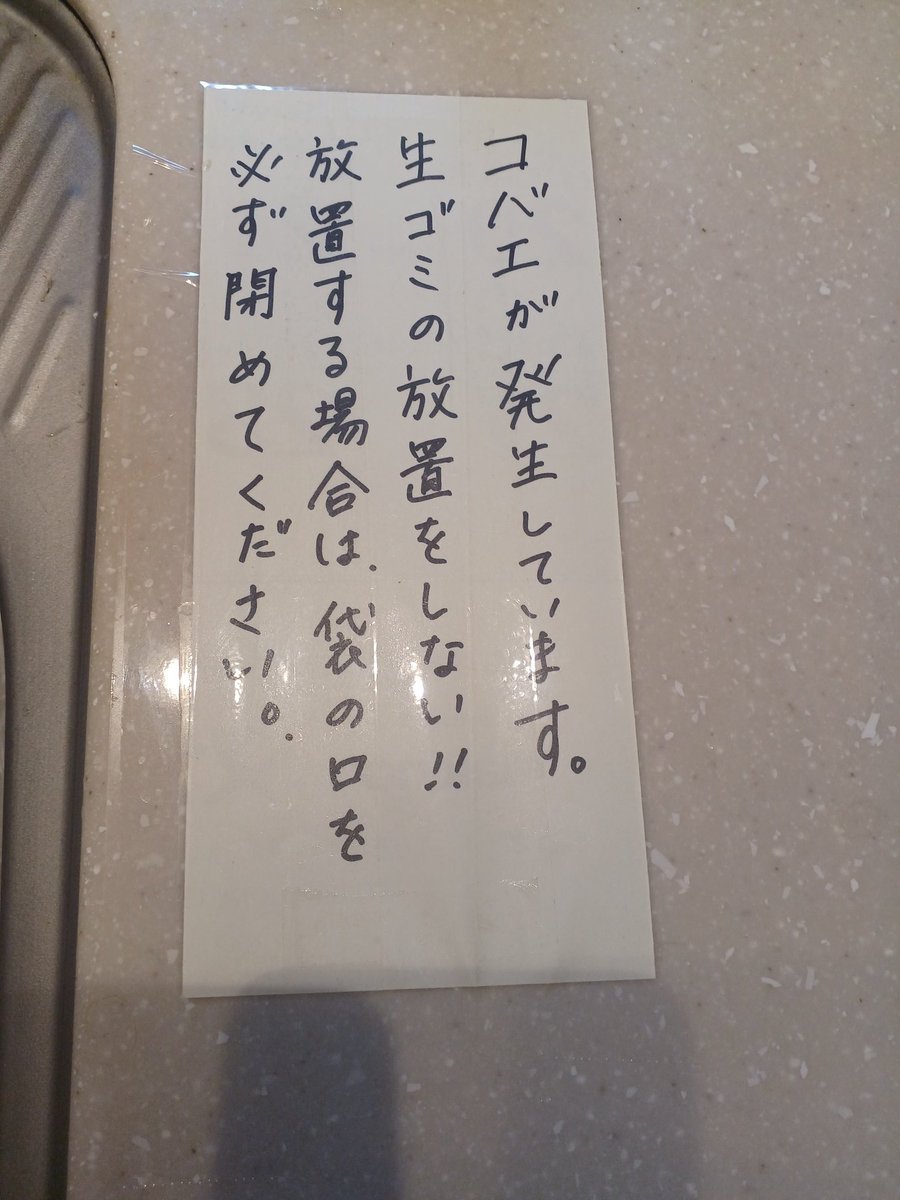 コバエが発生しています。
生ゴミの放置をしない!!
放置する場合は、袋の口を
必ず閉めてください。